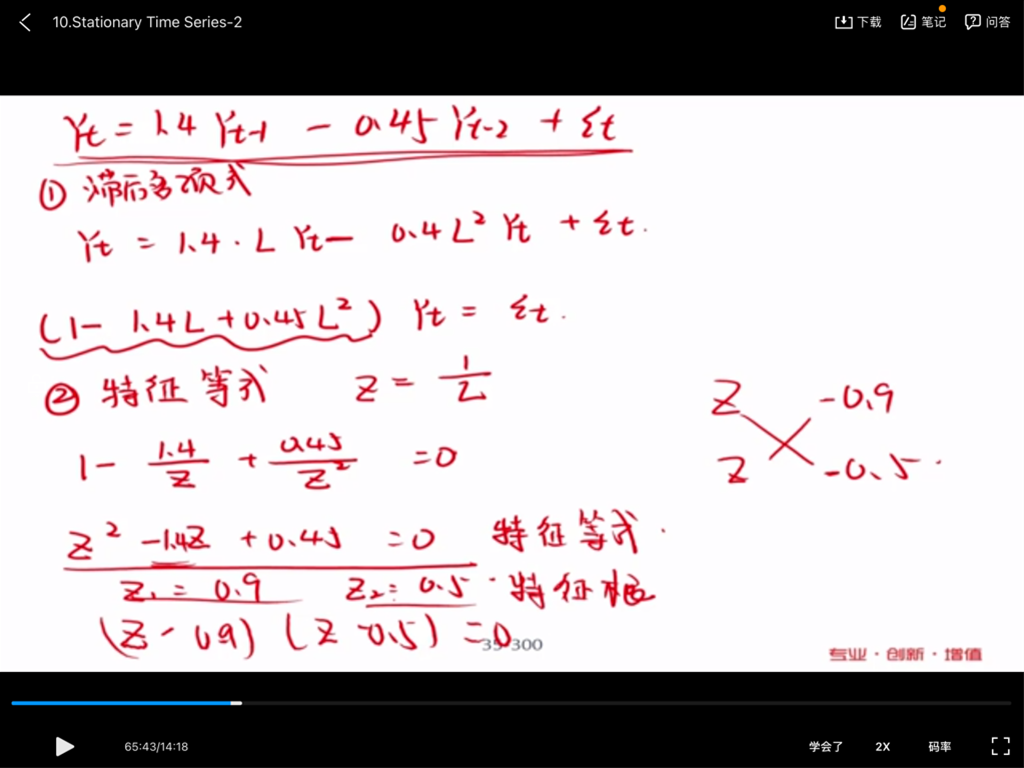 10.Stationary Time Series-2
下载 笔记 问答
Yt = 1.4 Yt-1 - 0.45 Yt-2 + εt
① 滞后多项式
Yt = 1.4 · L Yt - 0.4 L² Yt + εt.
(1 - 1.4L + 0.45L²) Yt = εt.
② 特征等式 Z = 1/L
1 - 1.4/Z + 0.45/Z² = 0
Z -0.9
Z -0.5.
Z² - 1.4Z + 0.45 = 0 特征等式.
Z₁ = 0.9 Z₂ = 0.5. 特征根
(Z - 0.9) (Z - 0.5) = 0
300
专业·创新·增值
65:43/14:18
学会了 2X 码率